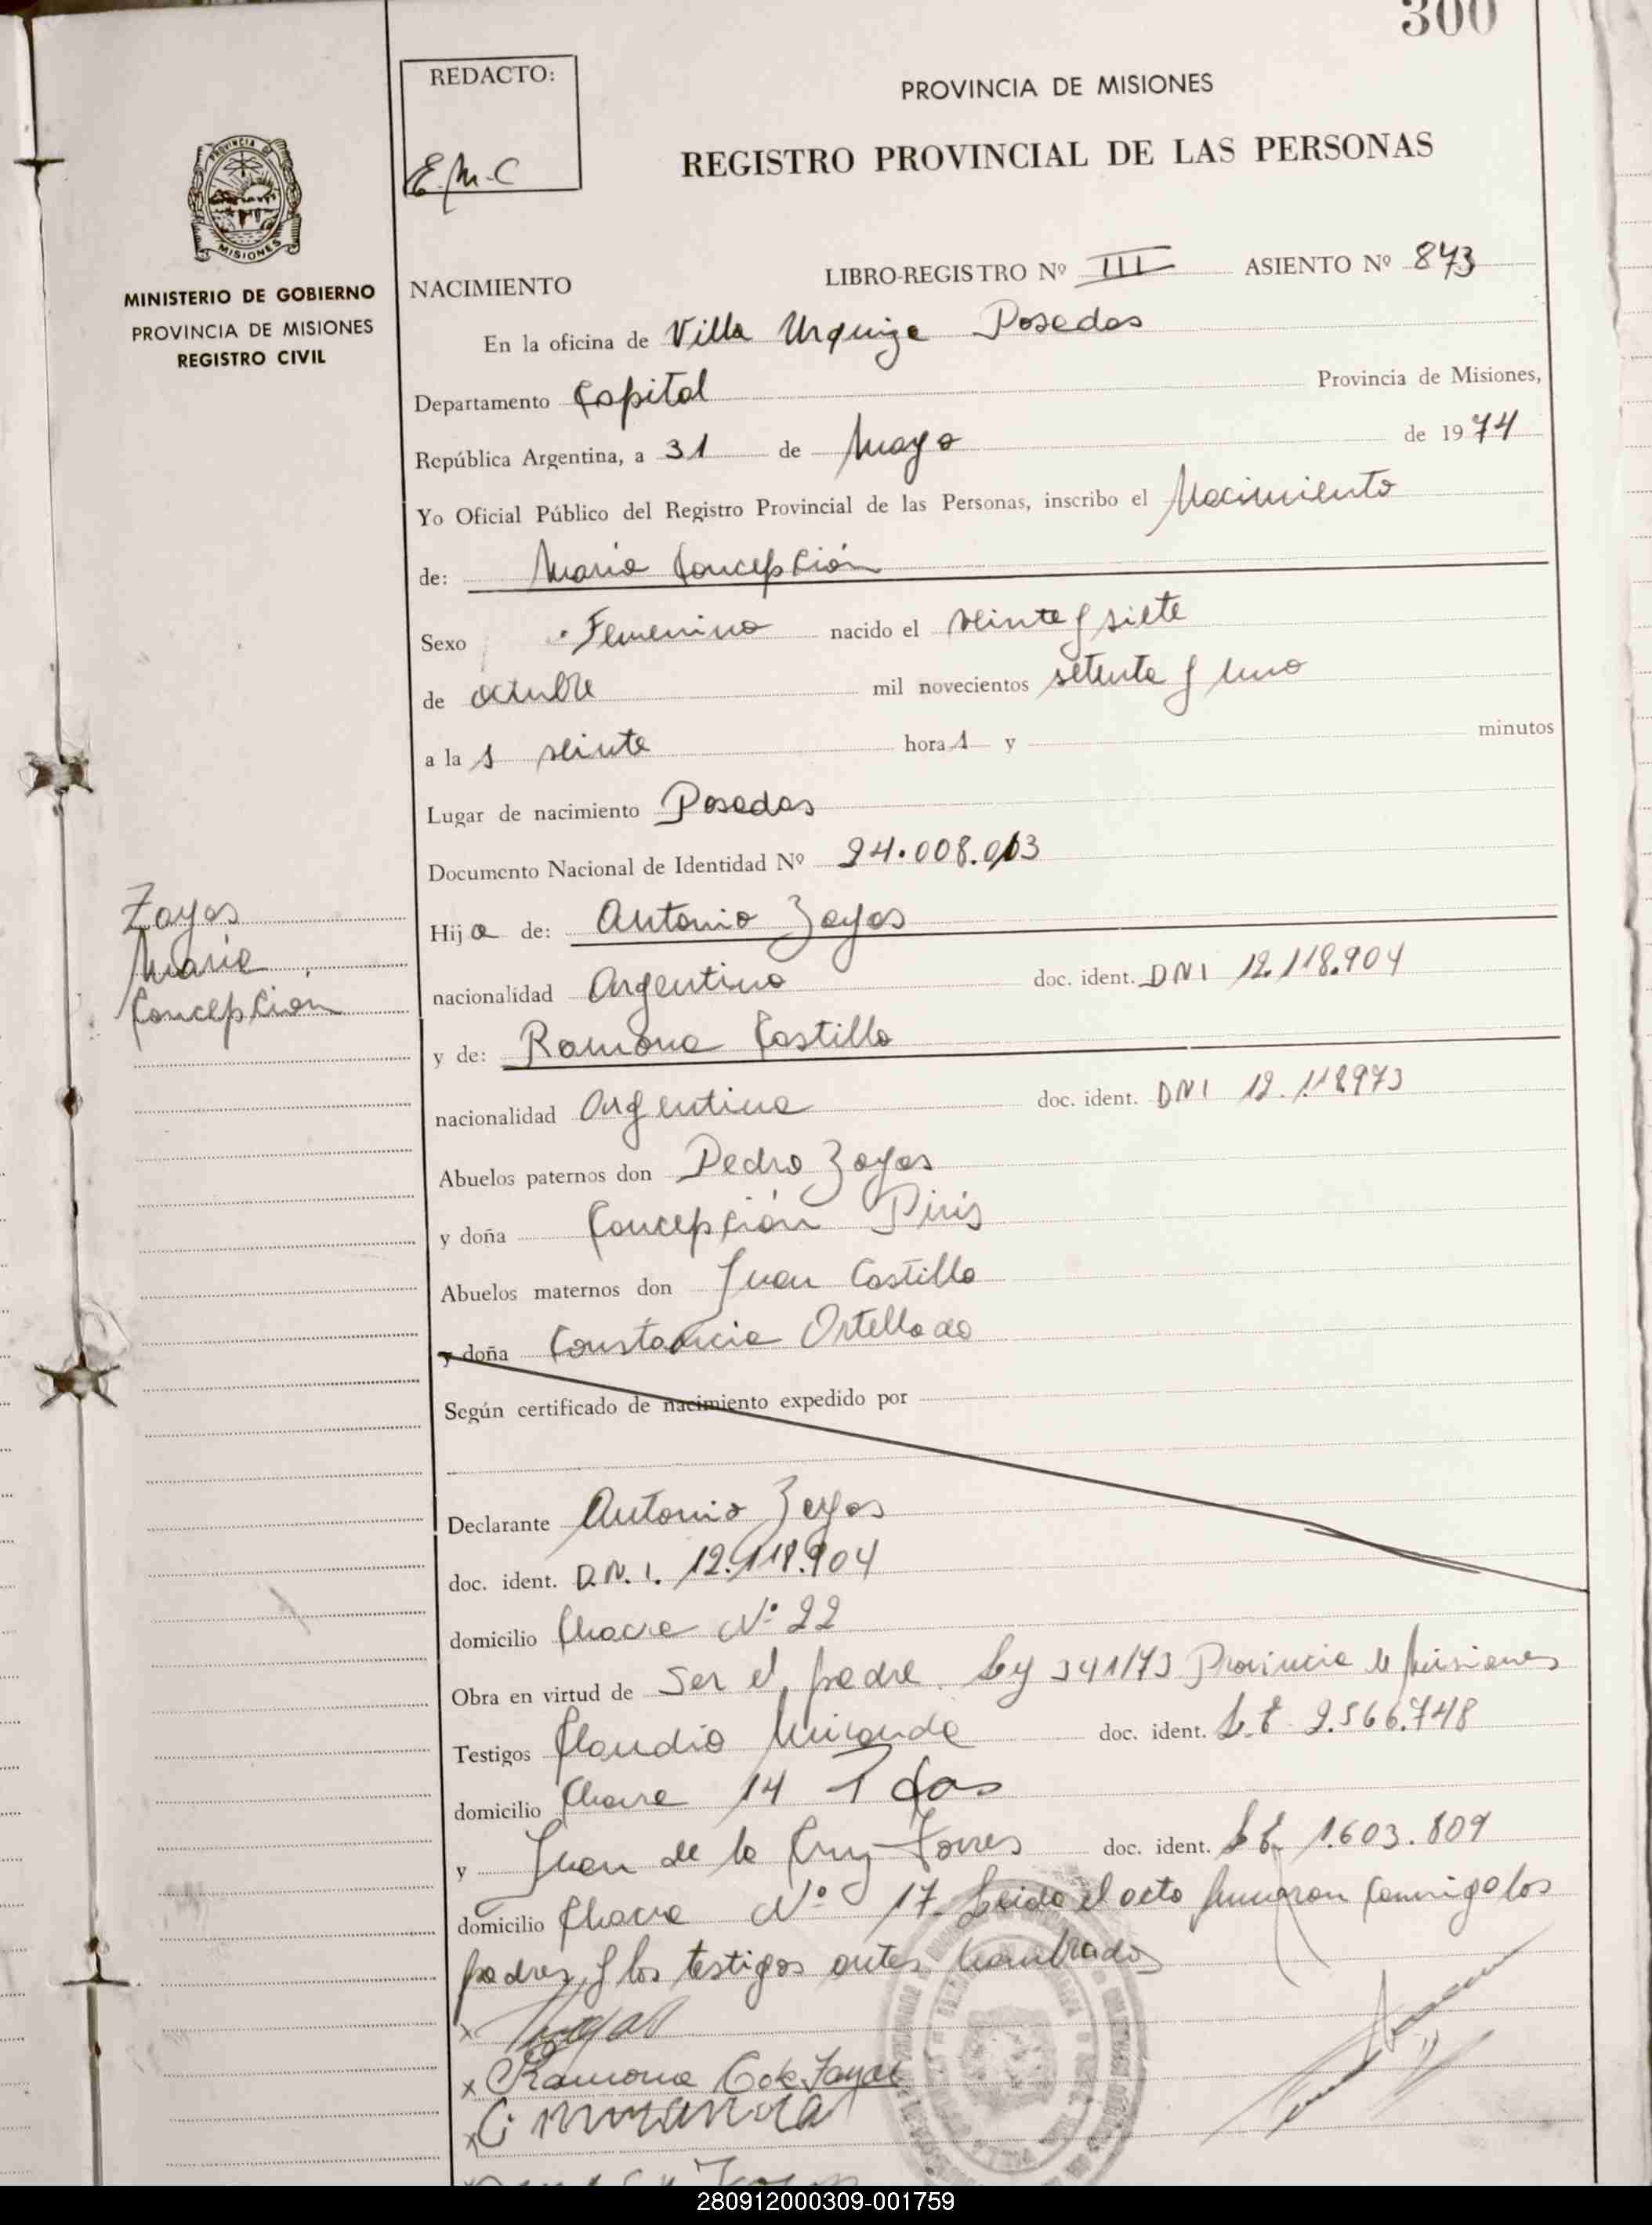 300
REDACTO:
E.M.C
PROVINCIA DE MISIONES
REGISTRO PROVINCIAL DE LAS PERSONAS
PROVINCIA DE
MISIONES
MINISTERIO DE GOBIERNO
PROVINCIA DE MISIONES
REGISTRO CIVIL
NACIMIENTO
LIBRO-REGISTRO Nº III ASIENTO Nº 873
En la oficina de Villa Urquiza Posadas
Departamento Capital Provincia de Misiones,
República Argentina, a 31 de Mayo de 1974
Yo Oficial Público del Registro Provincial de las Personas, inscribo el Nacimiento
de: María Concepción
Sexo Femenino nacido el veinte y siete
de octubre mil novecientos setenta y uno
a la s veinte hora s y minutos
Lugar de nacimiento Posadas
Documento Nacional de Identidad Nº 24.008.013
Zayas
María
Concepción
Hija de: Antonio Zayas
nacionalidad Argentino doc. ident. DNI 12.118.904
y de: Ramona Castillo
nacionalidad Argentina doc. ident. DNI 12.118973
Abuelos paternos don Pedro Zayas
y doña Concepción Piris
Abuelos maternos don Juan Castillo
y doña Constancia Ortellado
Según certificado de nacimiento expedido por
Declarante Antonio Zayas
doc. ident. D.N.I. 12.118.904
domicilio Chacra Nº 22
Obra en virtud de Ser el padre. Ley 341/73 Provincia de Misiones
Testigos Claudio Miranda doc. ident. L.E 2.566.748
domicilio Chacra 14 Pdas
y Juan de la Cruz Torres doc. ident. L.E. 1.603.809
domicilio Chacra Nº 17. Leida el acta firmaron conmigo los
padres y los testigos antes nombrados
x
x Ramona C de Zayas
x C. miranda
280912000309-001759